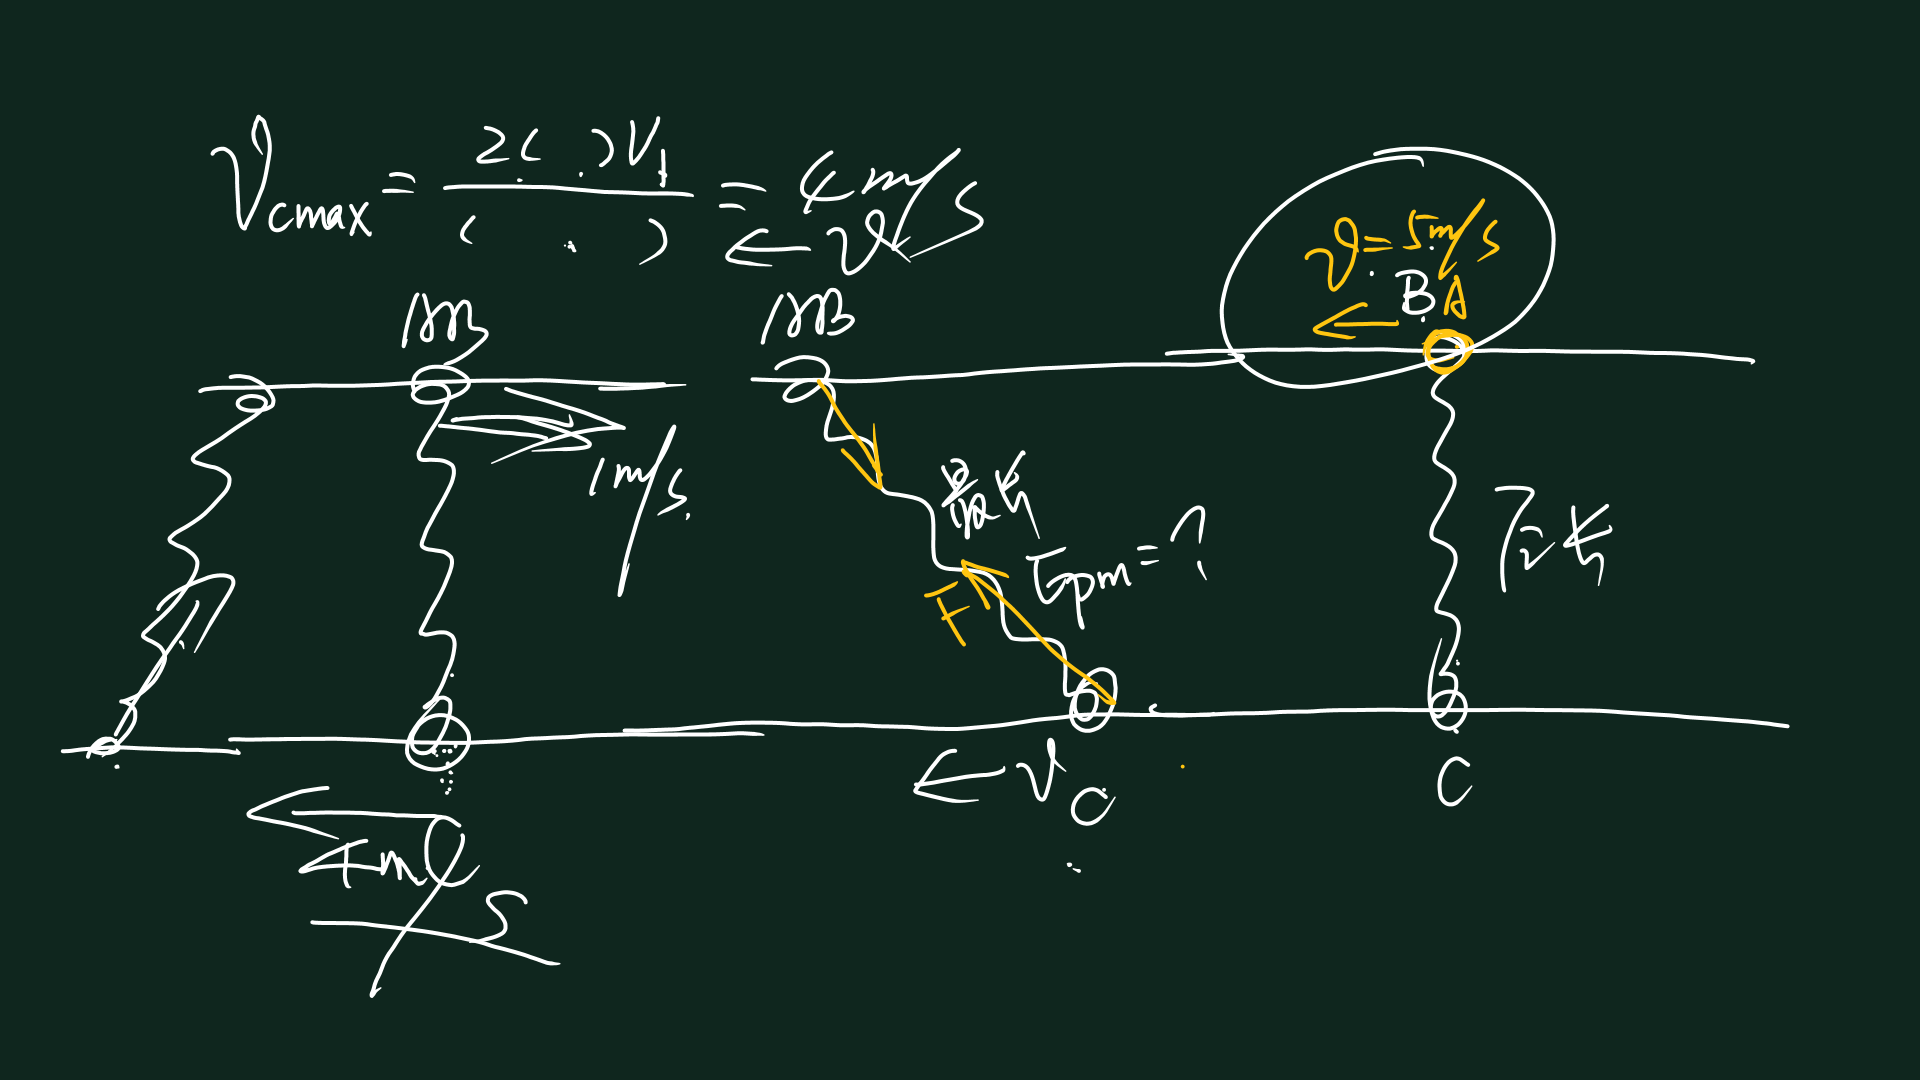 Vcmax = 2( )V1 / ( ) = 4m/s
← v
v = 5m/s
AB
AB
BA
1m/s
最长
Epm = ?
F
原长
← v
C
C
4m/s